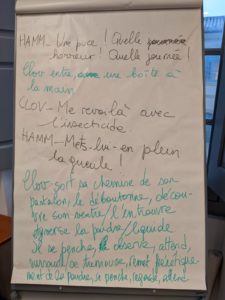 HAMM - Une puce ! Quelle
horreur ! Quelle journée !
Clov entre, une boîte à
la main
CLOV - Me revoilà avec
l'insecticide
HAMM - Mets-lui-en plein
la gueule !
Clov sort sa chemise de son
pantalon, le déboutonne, décou-
vre son ventre / l'entrouvre
déverse la poudre/liquide
Il se penche, observe, attend,
tressaille, se trémousse, remet frénétique-
ment de la poudre, se penche, regarde, attend